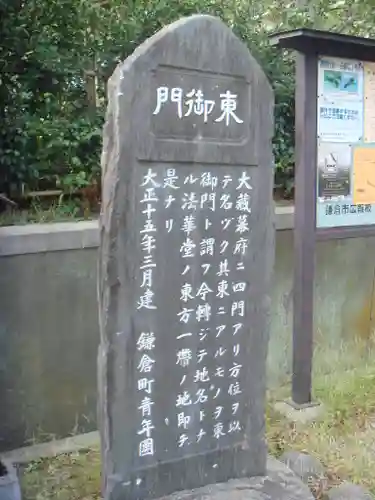 東御門
大蔵幕府ニ四門アリ方位ヲ以
テ名ヅク其東ニアルモノヲ東
御門ト謂フ今轉ジテ地名トナ
ル法華堂ノ東方一帶ノ地即チ
是ナリ
大正十五年三月建 鎌倉町青年團
鎌倉市広報板